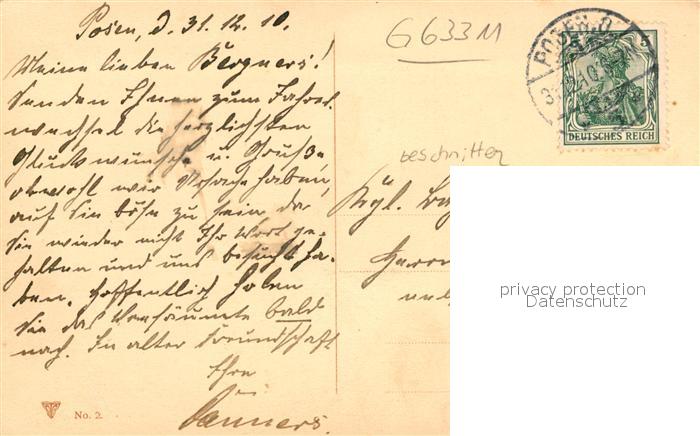 Posen, d. 31. 12. 10.
Meine lieben Bergners!
Senden Ihnen zum Jahres-
wechsel die herzlichsten
Glückwünsche u. Grüße
obwohl wir Ursache haben,
auf Sie böse zu sein, da
Sie wieder nicht Ihr Wort ge-
halten und uns besucht ha-
ben. Hoffentlich holen
Sie das Versäumte bald
nach. In alter Freundschaft
Ihre
No. 2.
G 633 M
POSEN.O
5
DEUTSCHES REICH
beschnitten
Kgl.
Herrn
privacy protection
Datenschutz